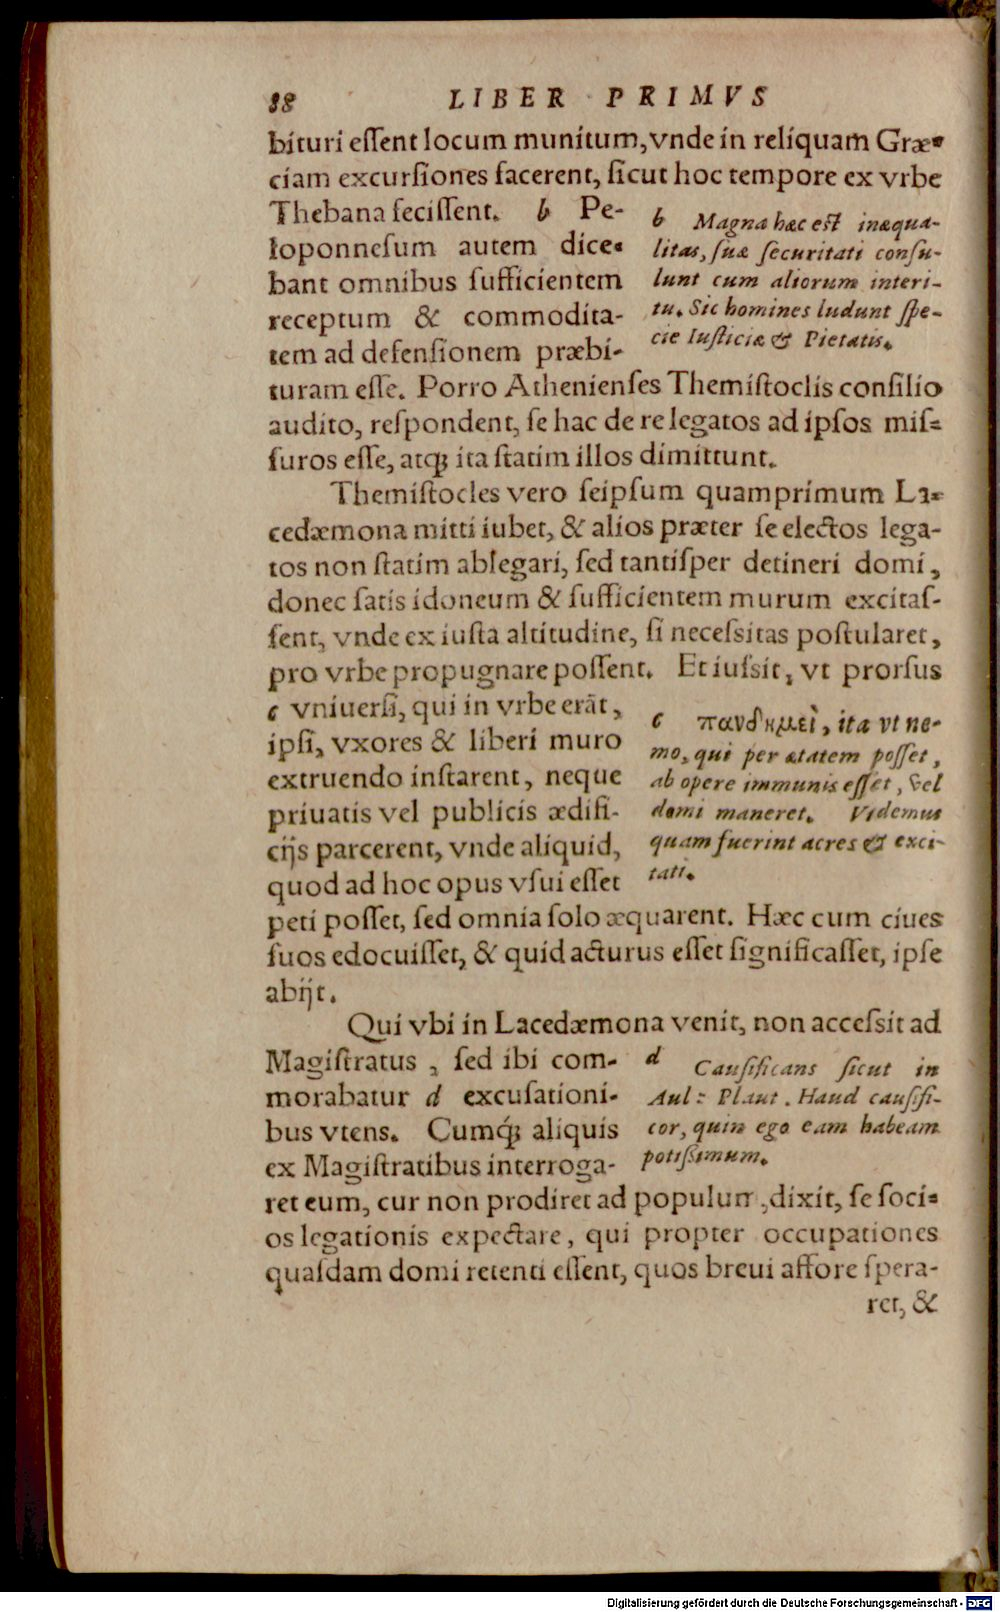 88 LIBER PRIMVS
bituri eſſent locum munitum, vnde in reliquam Græ-
ciam excurſiones facerent, ſicut hoc tempore ex vrbe
Thebana feciſſent. b Pe-
loponneſum autem dice-
bant omnibus ſufficientem
receptum & commodita-
tem ad defenſionem præbi-
b Magna hæc eſt inæqua-
litas, ſuæ ſecuritati conſu-
lunt cum aliorum interi-
tu. Sic homines ludunt ſpe-
cie Iuſticiæ & Pietatis.
turam eſſe. Porro Athenienſes Themiſtoclis conſilio
audito, reſpondent, ſe hac de re legatos ad ipſos miſ-
ſuros eſſe, atq; ita ſtatim illos dimittunt.
Themiſtocles vero ſeipſum quamprimum La-
cedæmona mitti iubet, & alios præter ſe electos lega-
tos non ſtatim ablegari, ſed tantiſper detineri domi,
donec ſatis idoneum & ſufficientem murum excitaſ-
ſent, vnde ex iuſta altitudine, ſi neceſsitas poſtularet,
pro vrbe propugnare poſſent. Et iuſsit, vt prorſus
c vniuerſi, qui in vrbe erāt,
ipſi, vxores & liberi muro
extruendo inſtarent, neque
priuatis vel publicis ædifi-
cijs parcerent, vnde aliquid,
quod ad hoc opus vſui eſſet
c πανδημεὶ, ita vt ne-
mo, qui per ætatem poſſet,
ab opere immunis eſſet, vel
domi maneret. Videmus
quam fuerint acres & exci-
tati.
peti poſſet, ſed omnia ſolo æquarent. Hæc cum ciues
ſuos edocuiſſet, & quid acturus eſſet ſignificaſſet, ipſe
abijt.
Qui vbi in Lacedæmona venit, non acceſsit ad
Magiſtratus, ſed ibi com-
morabatur d excuſationi-
bus vtens. Cumq́; aliquis
ex Magiſtratibus interroga-
d Cauſificans ſicut in
Aul: Plaut. Haud cauſifi-
cor, quin ego eam habeam
potiſsimum.
ret eum, cur non prodiret ad populum, dixit, ſe ſoci-
os legationis expectare, qui propter occupationes
quaſdam domi retenti eſſent, quos breui affore ſpera-
ret, &
Digitalisierung gefördert durch die Deutsche Forschungsgemeinschaft - DFG